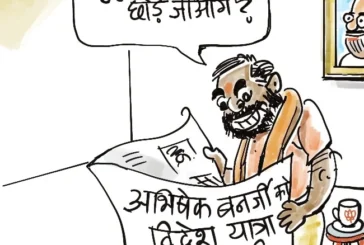 छोड़ जाओगे ?
अभिषेक बनर्जी की
विदेश यात्रा